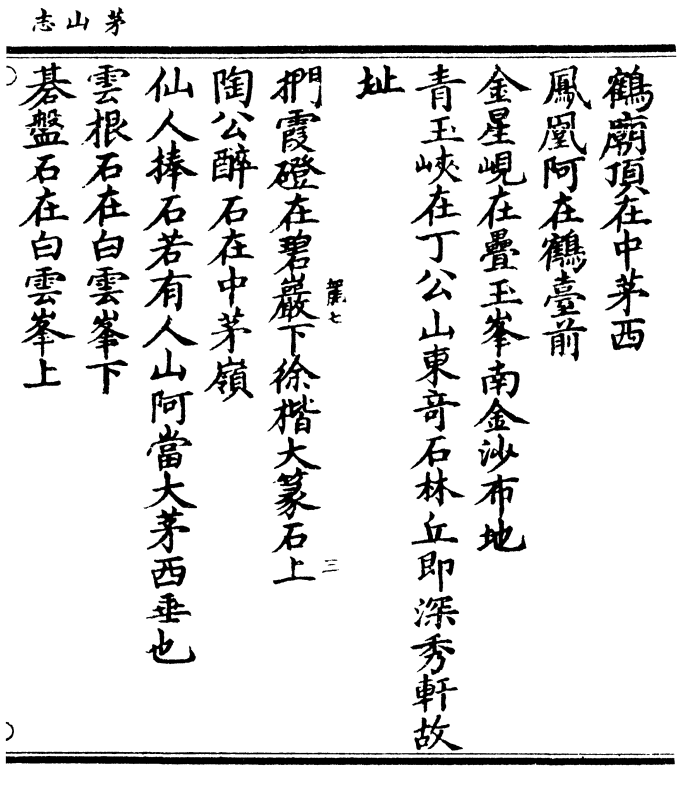 茅山志
鶴廟頂在中茅西
鳳凰阿在鶴臺前
金星峴在疊玉峯南金沙布地
青玉峽在丁公山東竒石林丘即深秀軒故
址
捫霞磴在碧巖下徐楷大篆石上
三
陶公醉石在中茅嶺
仙人捧石若有人山阿當大茅西垂也
雲根石在白雲峯下
碁盤石在白雲峯上